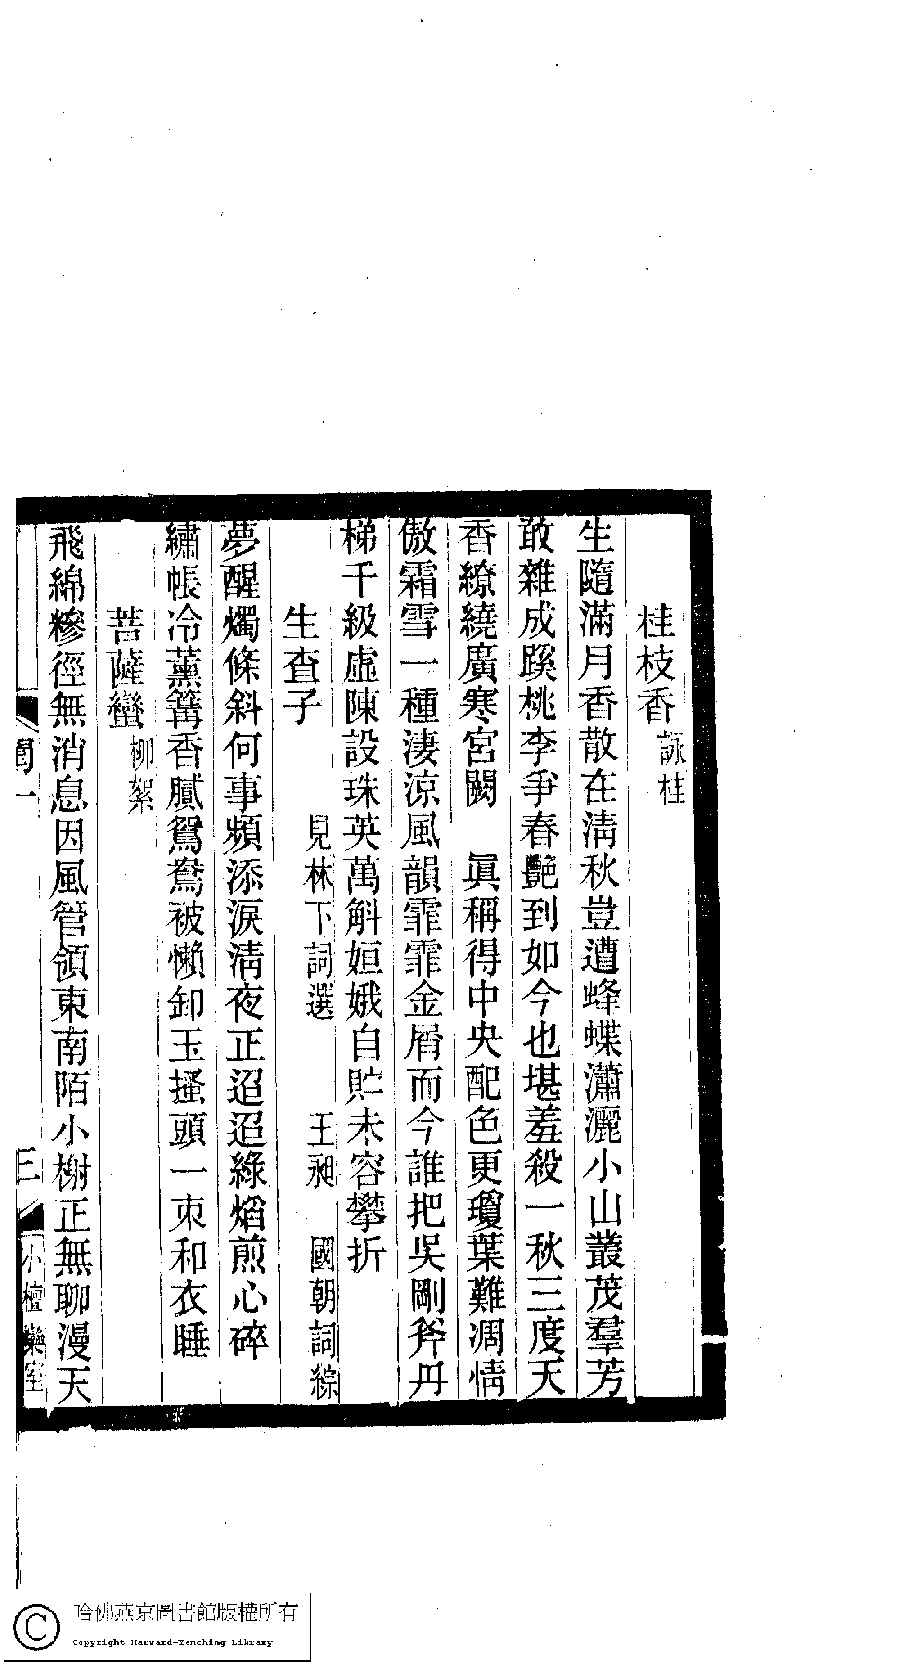 桂枝香詠桂
生隨滿月香散在清秋豈遭蜂蝶瀟灑小山叢茂羣芳
敢雜成蹊桃李爭春艷到如今也堪羞殺一秋三度天
香繚繞廣寒宮闕　眞稱得中央配色更瓊葉難凋情
傲霜雪一種淒涼風韻霏霏金屑而今誰把吳剛斧丹
梯千級虛陳設珠英萬斛姮娥自貯未容攀折
生查子　見林下詞選　王昶　國朝詞綜
夢醒燭條斜何事頻添淚清夜正迢迢綠熖煎心碎
繡帳冷薰篝香膩鴛鴦被懶卸玉搔頭一朿和衣睡
菩薩蠻柳絮
飛綿糝徑無消息因風管領東南陌小榭正無聊漫天
閨一
三
小檀欒室
哈佛燕京圖書館版權所有
Copyright Harvard-Yenching Library